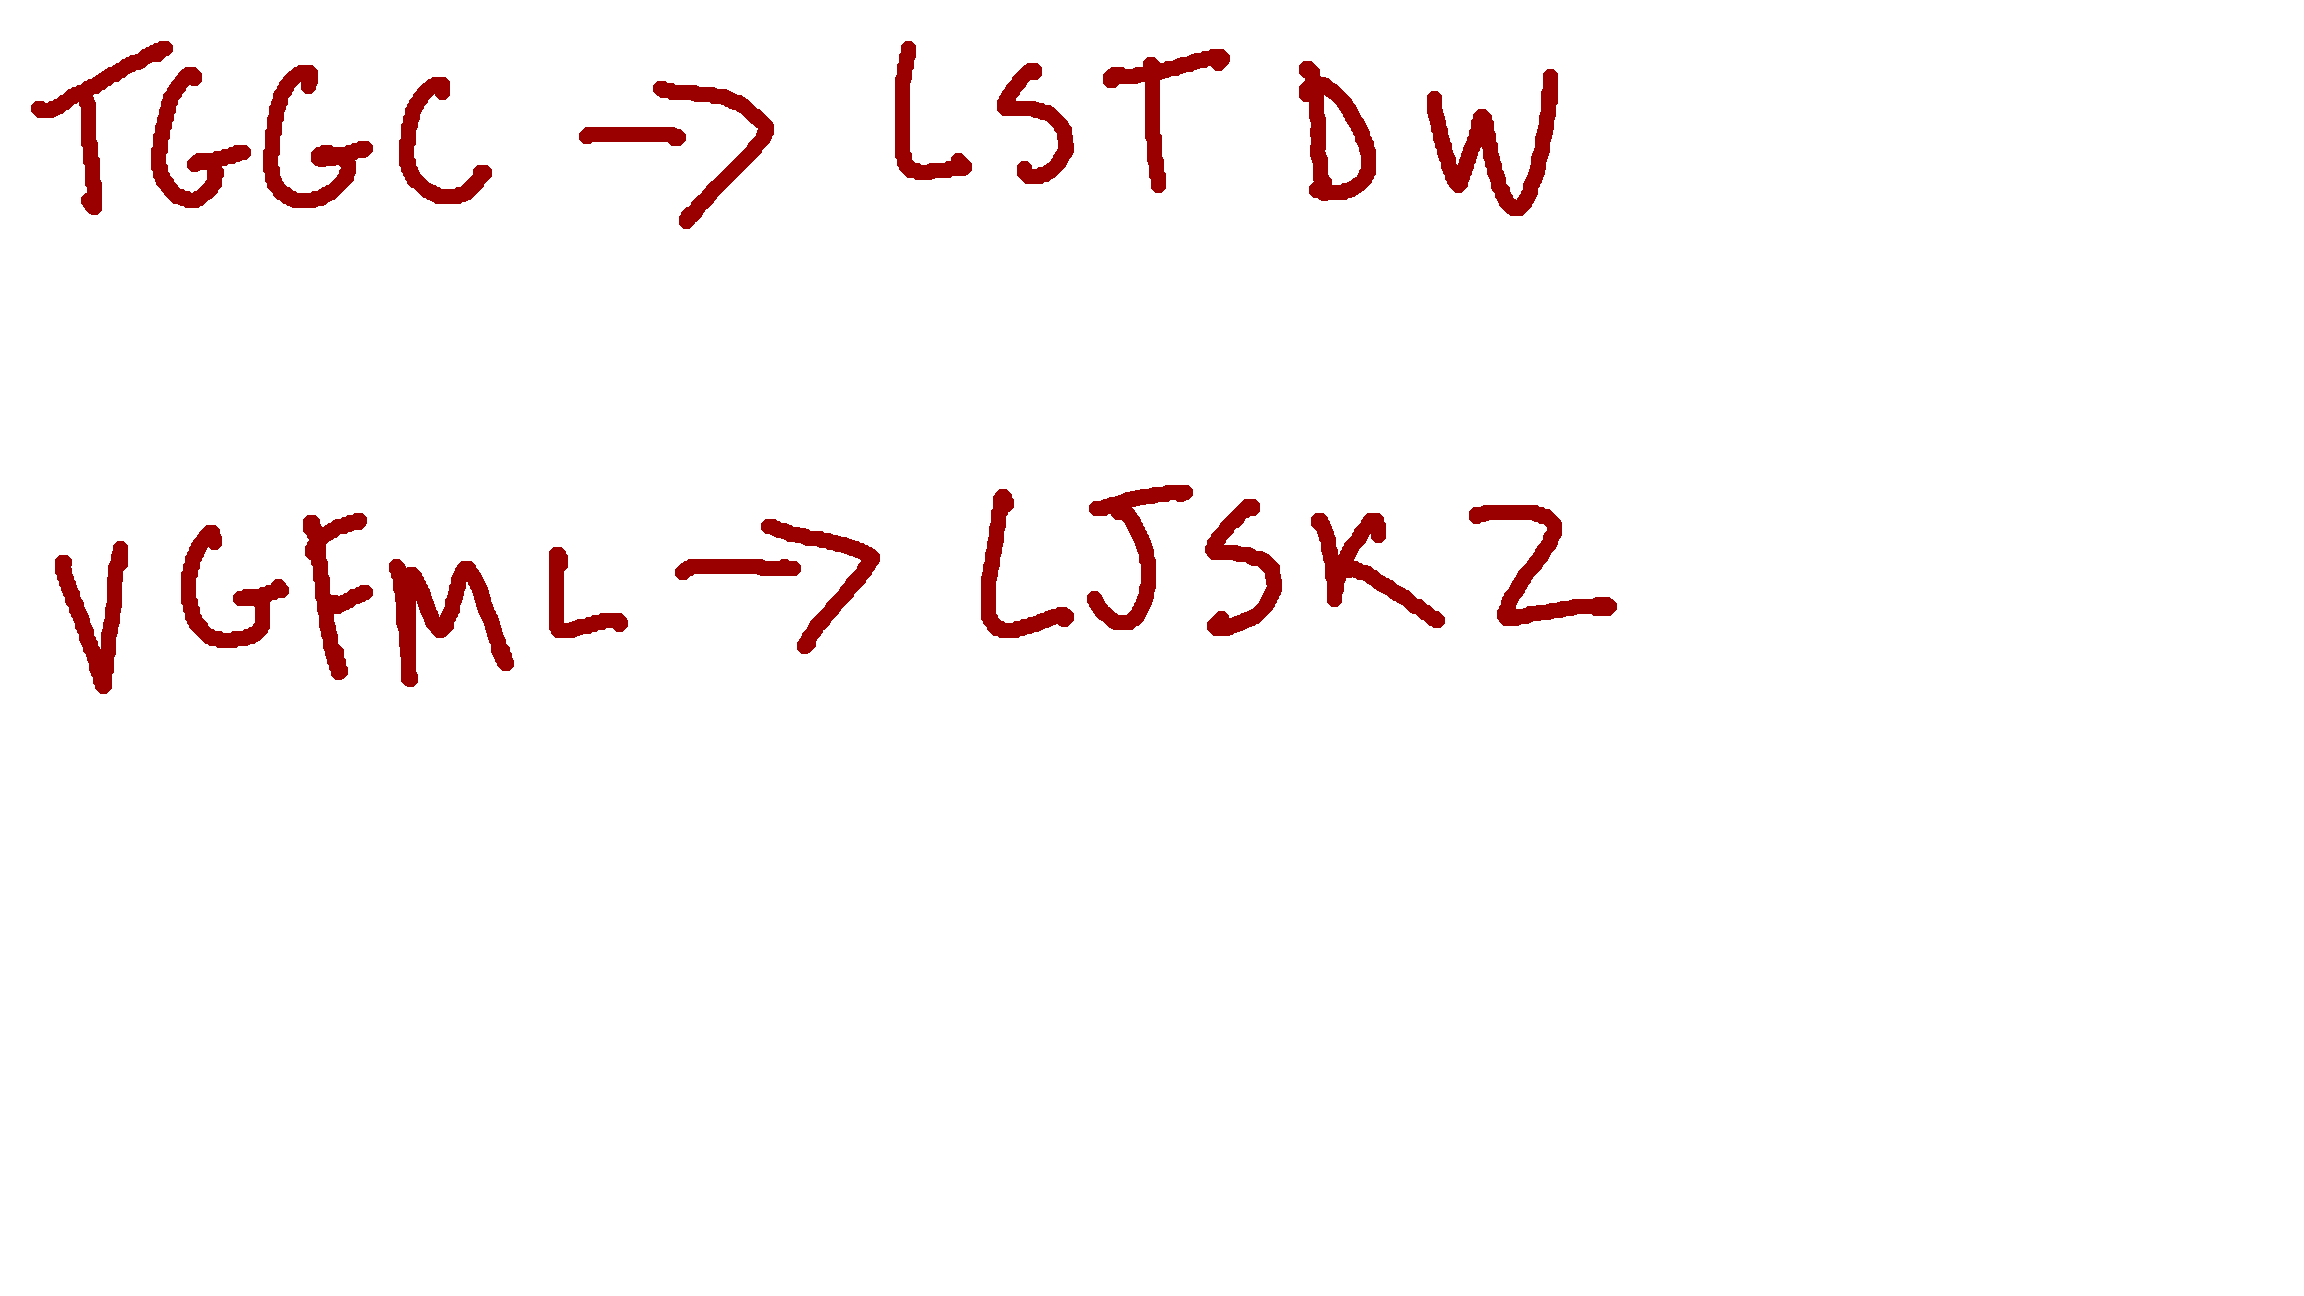 TGGC → LSTDW
VGFML → LJSKZ